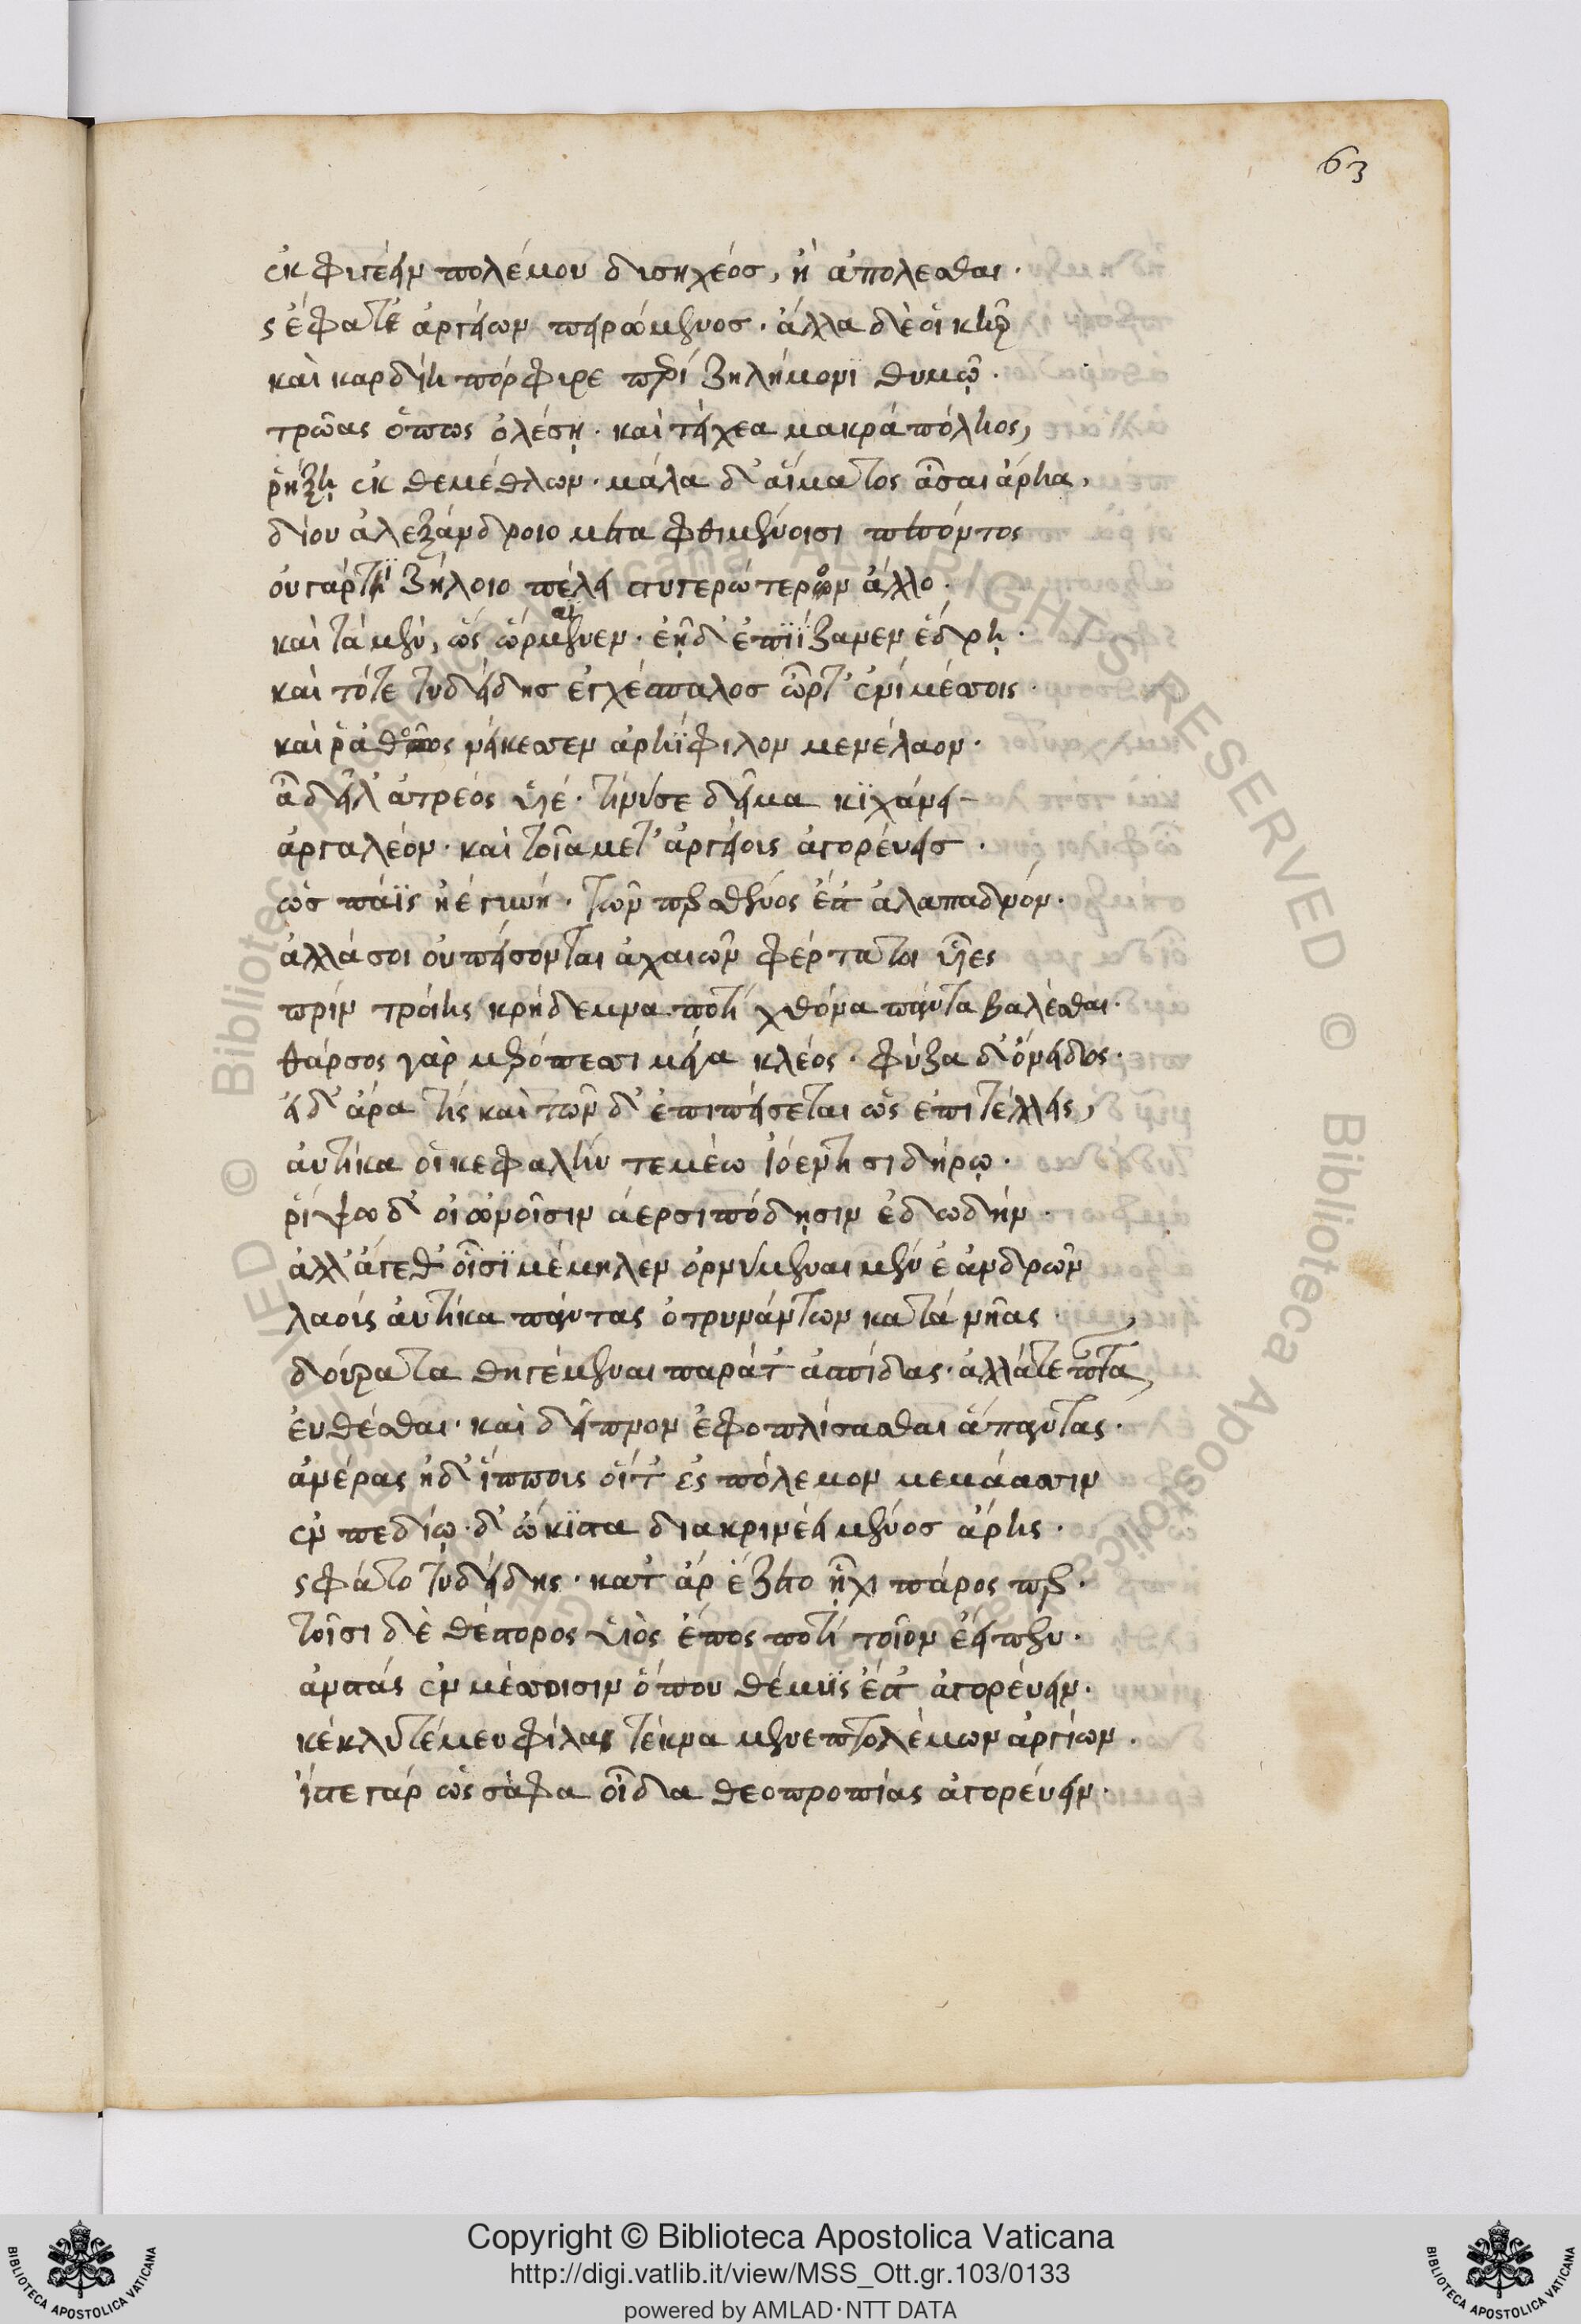 63
ἐκ φυγέειν πολέμου δυσηχέος, ἢ ἀπολέσθαι.
ς ἔφατ' ἀργείων πειρώμενος. ἄλλα δέ οἱ κῆρ
καὶ κραδίη πόρφυρε περὶ ζηλήμονι θυμῷ.
τρῶας ὅπως ὀλέσῃ. καὶ τείχεα μακρὰ πόληος,
ῥήξῃ ἐκ θεμέθλων. μάλα δ' αἵματος ἆσαι ἄρηα,
δίου ἀλεξάνδροιο μετὰ φθιμένοισι πεσόντος
οὐ γάρ τι ζήλοιο πέλει στυγερώτερον ἄλλο.
καὶ τὰ μὲν, ὣς ὥρμαινεν. ἑῇ δ' ἐπιίζανεν ἕδρῃ.
καὶ τότε τυδείδης ἐγχέσπαλος ὦρτ' ἐνὶ μέσσοις.
καί ῥα θοῶς νείκεσσεν ἀρηΐφιλον μενέλαον.
ἆ δείλ' ἀτρέος υἱέ. τί νύ σε δεῖμα κιχάνει
ἀργαλέον. καὶ τοῖα μετ' ἀργείοις ἀγορεύεις.
ὡς πάϊς ἠὲ γυνή. τῶν περ σθένος ἔστ' ἀλαπαδνόν.
ἀλλά σοι οὐ πείσονται ἀχαιῶν φέρτατοι υἷες
πρὶν τροίης κρήδεμνα ποτὶ χθόνα πάντα βαλέσθαι.
θάρσος γὰρ μερόπεσσι μέγα κλέος. φύζα δ' ὄνειδος.
εἰ δ' ἄρα τίς καὶ τῶν δ' ἐπιπείσεται ὡς ἐπιτέλλεις,
αὐτίκα οἱ κεφαλὴν τεμέω ἰόεντι σιδήρῳ.
ῥίψω δ' οἰωνοῖσιν ἀερσιπόδῃσιν ἐδωδήν.
ἀλλ' ἄγεθ' οἷσι μέμηλεν ὀρνύμεναι μένε' ἀνδρῶν
λαοὺς αὐτίκα πάντας ὀτρυνάντων κατὰ νῆας.
δούρατα θηγέμεναι παρά τ' ἀσπίδας. ἀλλά τε πάντα
εὐθέσθαι. καὶ δεῖπνον ἐφοπλίσασθαι ἅπαντας.
ἀνέρας ἠδ' ἵπποις οἵ τ' ἐς πόλεμον μεμάασιν
ἐν πεδίῳ. δ' ὤκιστα διακρινέει μένος ἄρης.
ς φάτο τυδείδης. κατ' ἄρ ἕζετο ἧχι πάρος περ.
τοῖσι δὲ θέστορος υἱὸς ἔπος ποτὶ τοῖον ἔειπεν.
ἀνστὰς ἐν μέσσοισιν ὅπου θέμις ἔστ' ἀγορεύειν.
κέκλυτέ μευ φίλα τέκνα μενεπτολέμων ἀργίων.
ἴστε γὰρ ὡς σάφα οἶδα θεοπροπίας ἀγορεύειν.
Copyright © Biblioteca Apostolica Vaticana
http://digi.vatlib.it/view/MSS_Ott.gr.103/0133
powered by AMLAD·NTT DATA